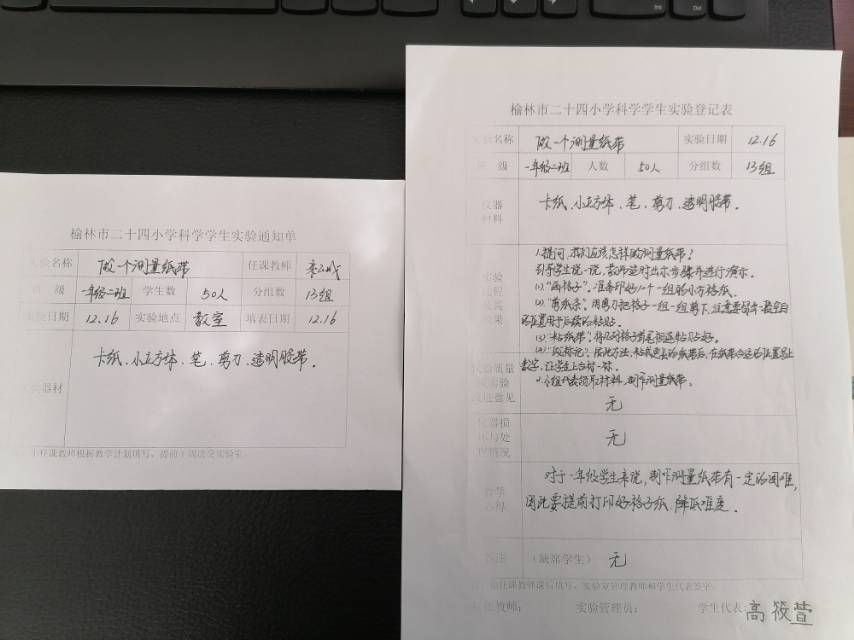 榆林市二十四小学科学学生实验通知单
实验名称 做一个测量纸带 任课教师
班 级 一年级二班 学生数 50人 分组数 13组
实验日期 12.16 实验地点 教室 填表日期 12.16
实验器材 卡纸、小正方体、笔、剪刀、透明胶带。
任课教师根据教学计划填写，提前1周送交实验室
榆林市二十四小学科学学生实验登记表
实验名称 做一个测量纸带 实验日期 12.16
班 级 一年级二班 人数 50人 分组数 13组
仪器
材料
卡纸、小正方体、笔、剪刀、透明胶带。
1.提问：我们应该怎样做测量纸带？
引导学生说一说，教师适时出示步骤并进行演示。
(1)"画格子"：准备印好10个一组的小方格纸。
(2)"剪纸条"：用剪刀把格子一组一组剪下，
(3)"粘纸带"：
数字，
2.小组代表领取材料，制作测量纸带。
实验质量
改进意见
无
仪器损
坏与处
理情况
无
对于一年级学生来说，制作测量纸带有一定的困难，
因此要提前打印好格子纸，降低难度。
备注 (缺席学生) 无
任课教师课后填写，实验室管理教师和学生代表签字。
任课教师： 实验管理员： 学生代表：高筱萱